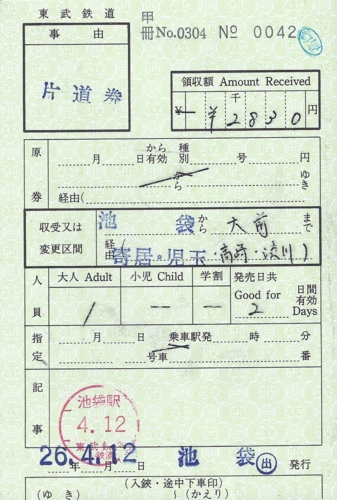 東武鉄道
甲
冊No.0304 № 0042
事由
片道券
領収額 Amount Received
千
¥ ¥2830円
原券
から 種
月 日有効 別 号 円
から ゆき
経由(
収受又は
変更区間
池袋から大前まで
経由(寄居・児玉・高崎・渋川)
人員
大人 Adult 小児 Child 学割
1 — —
発売日共
Good for 2 日間有効 Days
指定
月 日 乗車駅発 時 分
号車 番
記事
池袋駅
4.12
26.4.12 池袋 出
年 月 日 発行
(入鋏・途中下車印)
(ゆき) 〜(かえり)